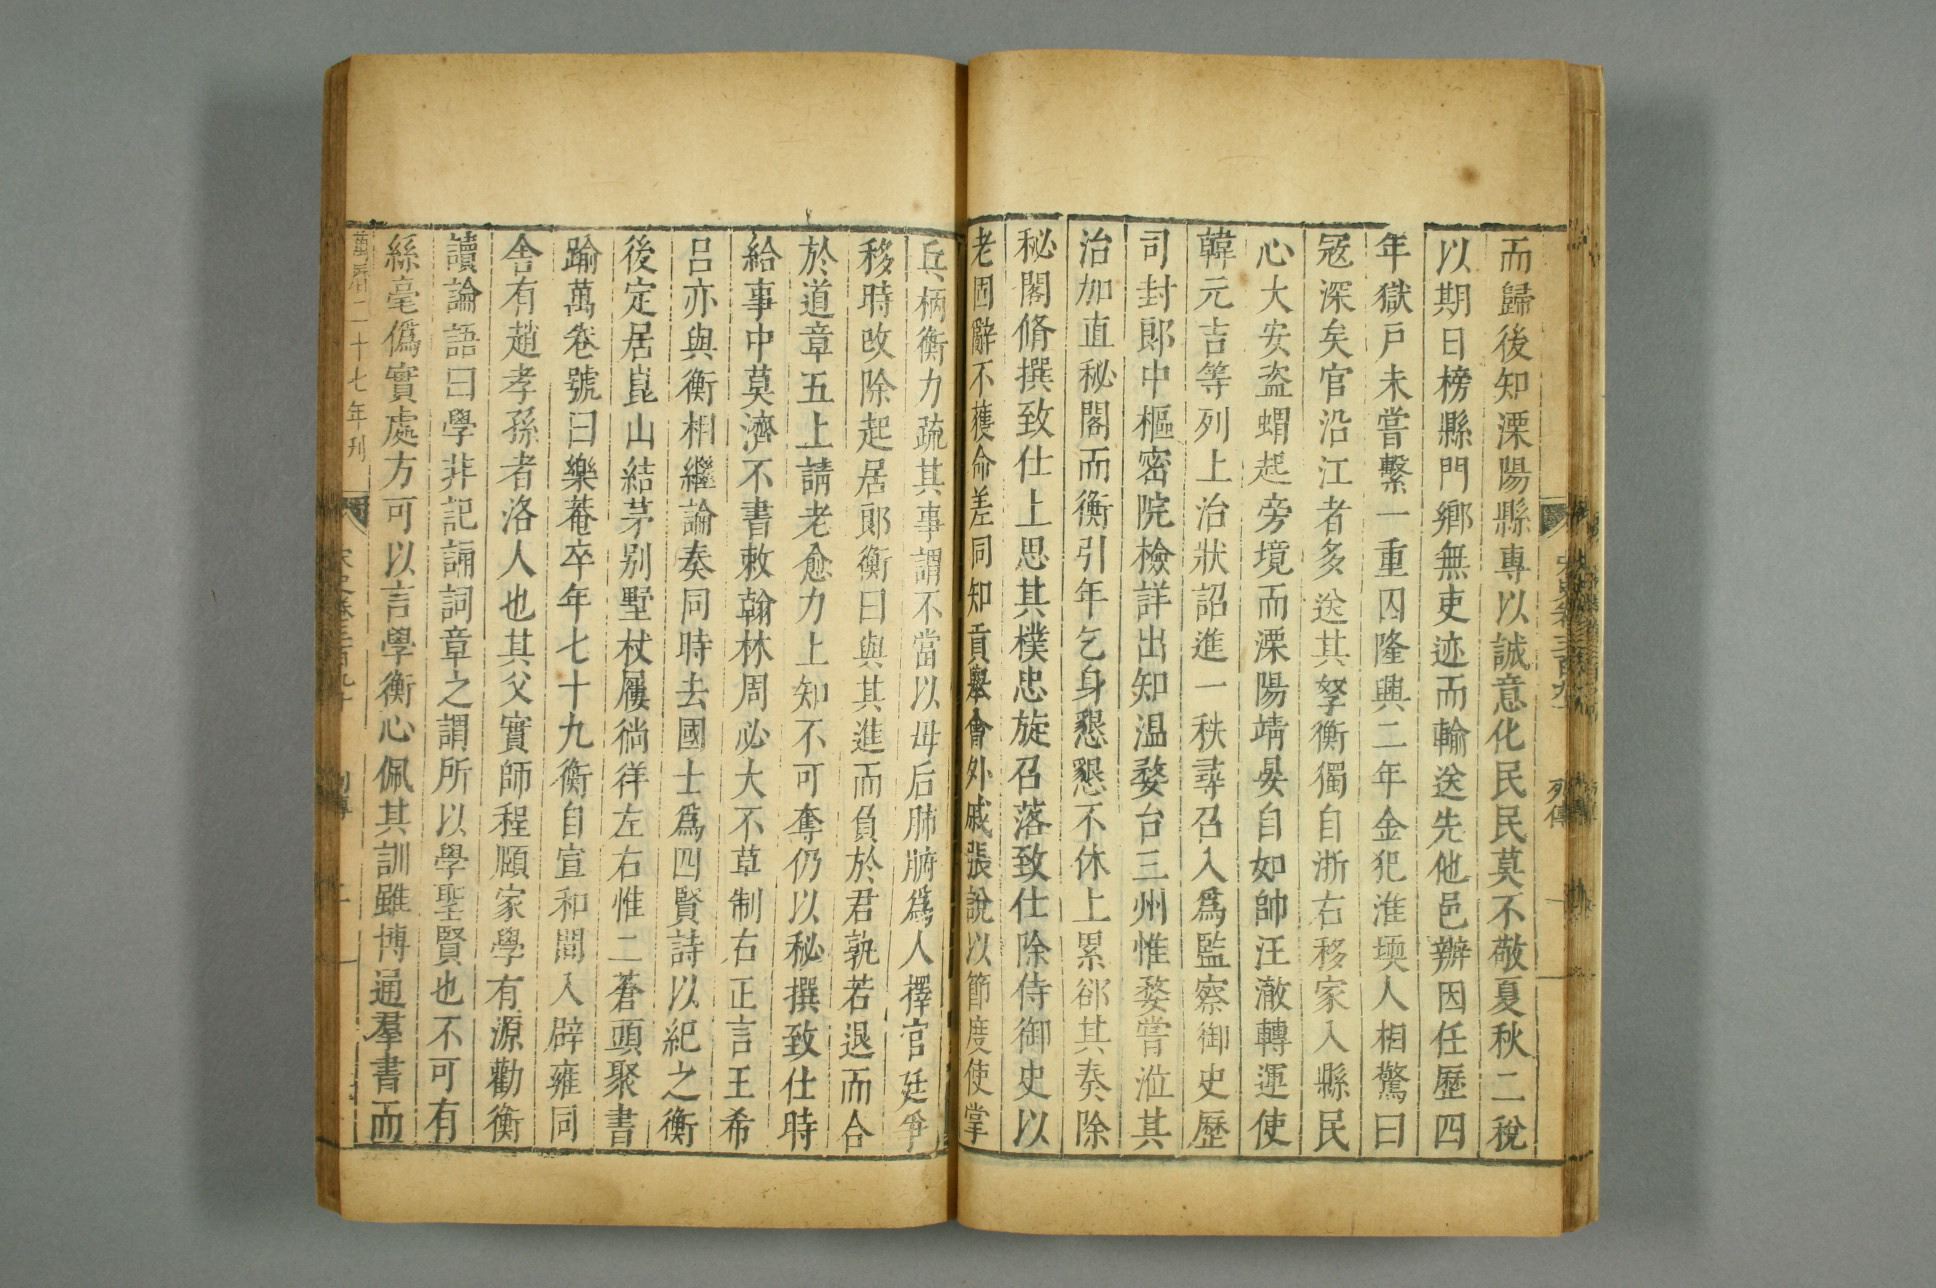 而歸後知溧陽縣專以誠意化民民莫不敬夏秋二稅
以期日榜縣門鄉無吏迹而輸送先他邑辦因任歷四
年獄戶未嘗繫一重囚隆興二年金犯淮壖人相驚曰
寇深矣官沿江者多送其孥衡獨自浙右移家入縣民
心大安盗蝟起旁境而溧陽靖晏自如帥汪澈轉運使
韓元吉等列上治狀詔進一秩尋召入爲監察御史歷
司封郎中樞密院檢詳出知温婺台三州惟婺嘗涖其
治加直秘閣而衡引年乞身懇懇不休上累郤其奏除
秘閣脩撰致仕上思其樸忠旋召落致仕除侍御史以
老固辭不獲命差同知貢舉會外戚張說以節度使掌
兵柄衡力疏其事謂不當以母后肺腑爲人擇官廷爭
移時改除起居郎衡曰與其進而負於君孰若退而合
於道章五上請老愈力上知不可奪仍以秘撰致仕時
給事中莫濟不書敕翰林周必大不草制右正言王希
吕亦與衡相繼論奏同時去國士爲四賢詩以紀之衡
後定居崑山結茅别墅杖屨徜徉左右惟二蒼頭聚書
踰萬卷號曰樂菴卒年七十九衡自宣和間入辟雍同
舍有趙孝孫者洛人也其父實師程頤家學有源勸衡
讀論語曰學非記誦詞章之謂所以學聖賢也不可有
絲毫僞實處方可以言學衡心佩其訓雖博通羣書而
萬曆二十七年刊
宋史卷三百九十
列傳